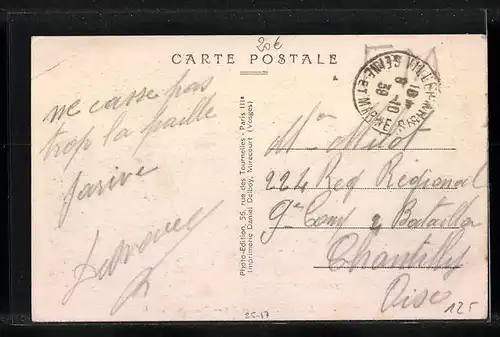 20€
CARTE POSTALE
ne casse pas
trop la paille
j'arrive
Photo-Edition, 56, rue des Tournelles - Paris IIIe
Imprimerie Daniel Delboy, Mirecourt (Vosges)
SEINE-ET-MARNE
18H
8-10
39
Mr Milot
224 Reg Régional
9e Comp 2 Bataillon
Chantilly
Oise
25-17
125